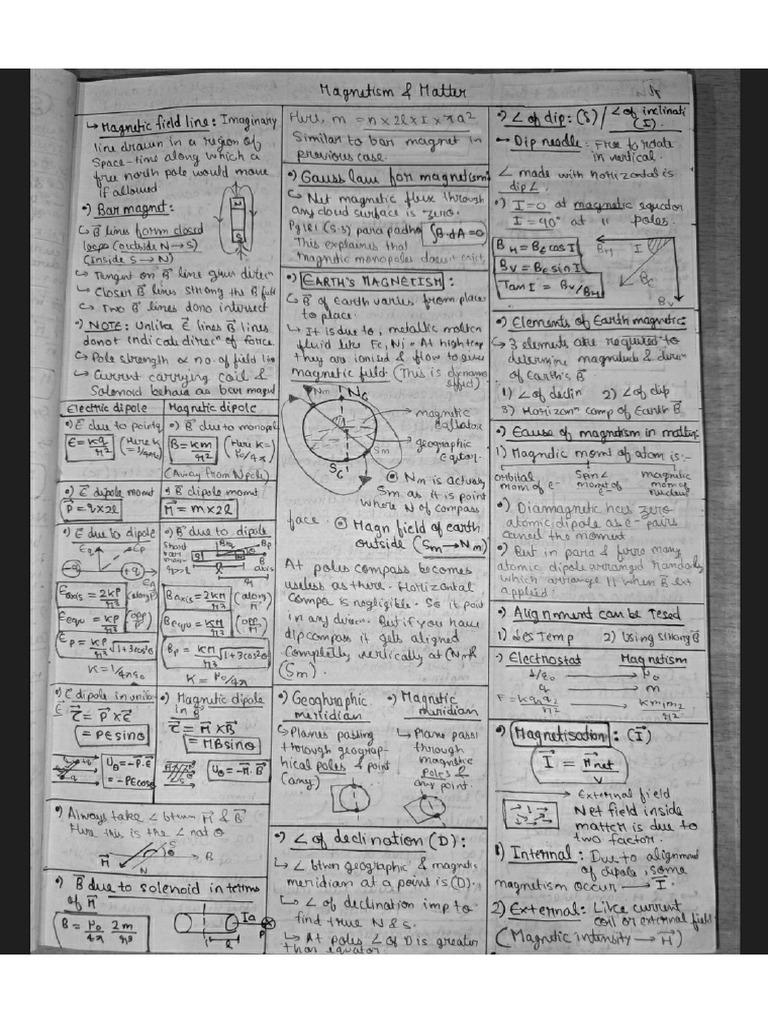 Magnetism & Matter
↳ Magnetic field line: Imaginary
line drawn in a region of
Space-time along which a
free north pole would move
if allowed.
•) Bar magnet:
N
S
↳ B⃗ lines form closed
loops (outside N→S)
(Inside S→N)
↳ Tangent on B⃗ line gives direcⁿ
↳ Closer B⃗ lines strong the B⃗ full
↳ Two B⃗ lines dono intersect
•) NOTE: Unlike E⃗ lines B⃗ lines
donot indicate direcⁿ of force.
↳ Pole strength ∝ no. of field li
↳ Current carrying coil &
Solenoid behave as bar magn
Electric dipole | Magnetic dipole
•) E⃗ due to point q | •) B⃗ due to monopole
E = kq/r² (Here K = 1/4πε₀) | B = km/r² (Here K = μ₀/4π)
(Away from N pole)
•) E⃗ dipole momt | •) B⃗ dipole momt
P⃗ = q×2l | M⃗ = m×2l
•) E⃗ due to dipole | •) B⃗ due to dipole
E axis = 2KP/r³ (along P) | B axis = 2KM/r³ (along M⃗)
E equ = KP/r³ (opp P) | B equ = KM/r³ (opp. M⃗)
E p = KP/r³ √1+3cos²θ | B p = KM/r³ √1+3cos²θ
K = 1/4πε₀ | K = μ₀/4π
•) E dipole in unifo E⃗ | •) Magnetic dipole in B⃗
τ⃗ = P⃗ × E⃗ | τ⃗ = M⃗ × B⃗
= PE sinθ | = MB sinθ
Uθ = -P⃗.E⃗ | Uθ = -M⃗.B⃗
= -PE cosθ
•) Always take ∠ btwn M⃗ & B⃗
Here this is the ∠ not θ
M⃗ S θ B N
•) B⃗ due to solenoid in terms
of M⃗
B = μ₀/4π 2m/r³
Here, m = n×2l×I×πa²
Similar to bar magnet in
previous case.
•) Gauss law for magnetism:
↳ Net magnetic flux through
any cloud surface is zero.
Pg 181 (5.3) para padho
∫B.dA = 0
This explains that
magnetic monopoles doesn't exist
•) EARTH'S MAGNETISM:
↳ B⃗ of earth varies from place
to place.
↳ It is due to, metallic molten
fluid like Fe, Ni – At high temp
they are ionised & flow to give
magnetic field (This is dynamo
effect)
Nm NG
→ magnetic
equator
→ geographic
equator.
Sm
SG
Nm is actually
Sm as it is point
where N of compass
face.
Magn field of earth
outside (Sm → Nm)
At poles compass becomes
useless as there. Horizontal
compo is negligible. So it point
in any direcⁿ. But if you have
dip compass it gets aligned
completely vertically at (Nm &
Sm)
•) Geoghraphic | •) Magnetic
meridian | meridian
↳ Planes passing | ↳ Plane passi
through geograp- | through
hical poles & point | magnetic
(any) | poles &
any point.
•) ∠ of declination (D):
↳ ∠ btwn geographic & magnetic
meridian at a point is (D).
↳ ∠ of declination imp to
find true N & S.
↳ At poles ∠ of D is greater
than equator.
•) ∠ of dip: (δ) / ∠ of inclinati
(I).
→ Dip needle: Free to rotate
in vertical.
∠ made with horizontal is
dip ∠.
•) I=0 at magnetic equator
I = 90° at " poles.
B H = B E cos I
B V = B E sin I
Tan I = B V / B H
B H I
B E
B V
•) Elements of Earth magnetic:
↳ 3 elements are required to
determine magnitude & direcⁿ
of Earth's B⃗
1) ∠ of declin 2) ∠ of dip
3) Horizonⁿ comp of Earth B⃗
•) Cause of magnetism in matter:
1) Magndic momt of atom is:-
orbital mom of e- | Spin ∠ momt of e- | magnetic mom of nucleus
•) Diamagnetic has zero
atomic dipole as e- pairs
cancel the moment
•) But in para & ferro many
atomic dipole arranged randomly
which arrange || when B⃗ ext
applied.
•) Alignment can be Tesed
1) Les Temp 2) Using strong B⃗
•) Electrostat Magnetism
1/ε₀ → μ₀
q → m
F = kq₁q₂/r² → Km₁m₂/r²
•) Magnetisation: (I⃗)
I⃗ = M⃗ net / V
→ External field
Net field inside
matter is due to
two factor.
1) Internal: Due to alignment
of dipole, some
magnetism occur → I⃗.
2) External: Like current
coil or external field
(Magnetic intensity → H⃗)